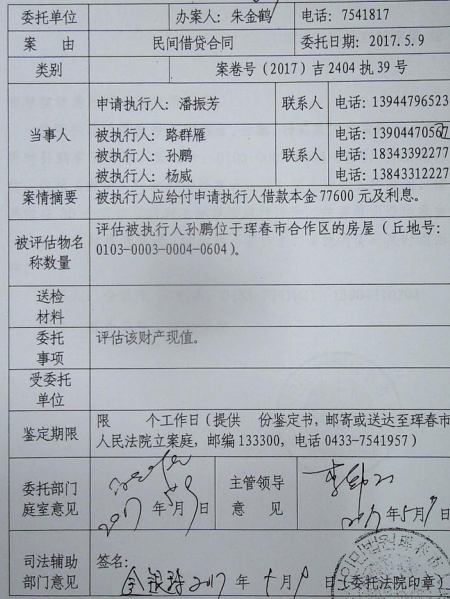 委托单位 办案人：朱金鹤 电话：7541817
案由 民间借贷合同 委托日期：2017.5.9
类别 案卷号（2017）吉2404执39号
当事人 申请执行人：潘振芳 联系人 电话：13944796523
被执行人：路群雁 电话：139044705
被执行人：孙鹏 联系人 电话：18343392277
被执行人：杨威 电话：13843312227
案情摘要 被执行人应给付申请执行人借款本金77600元及利息。
被评估物名称数量 评估被执行人孙鹏位于珲春市合作区的房屋（丘地号：
0103-0003-0004-0604）。
送检
材料
委托
事项 评估该财产现值。
受委托
单位
鉴定期限 限 个工作日（提供 份鉴定书，邮寄或送达至珲春市
人民法院立案庭，邮编133300，电话0433-7541957）
委托部门
庭室意见 2017年5月9日
主管领导
意见 2017年5月9日
司法辅助
部门意见 签名：
金银珠 2017年5月9日（委托法院印章）